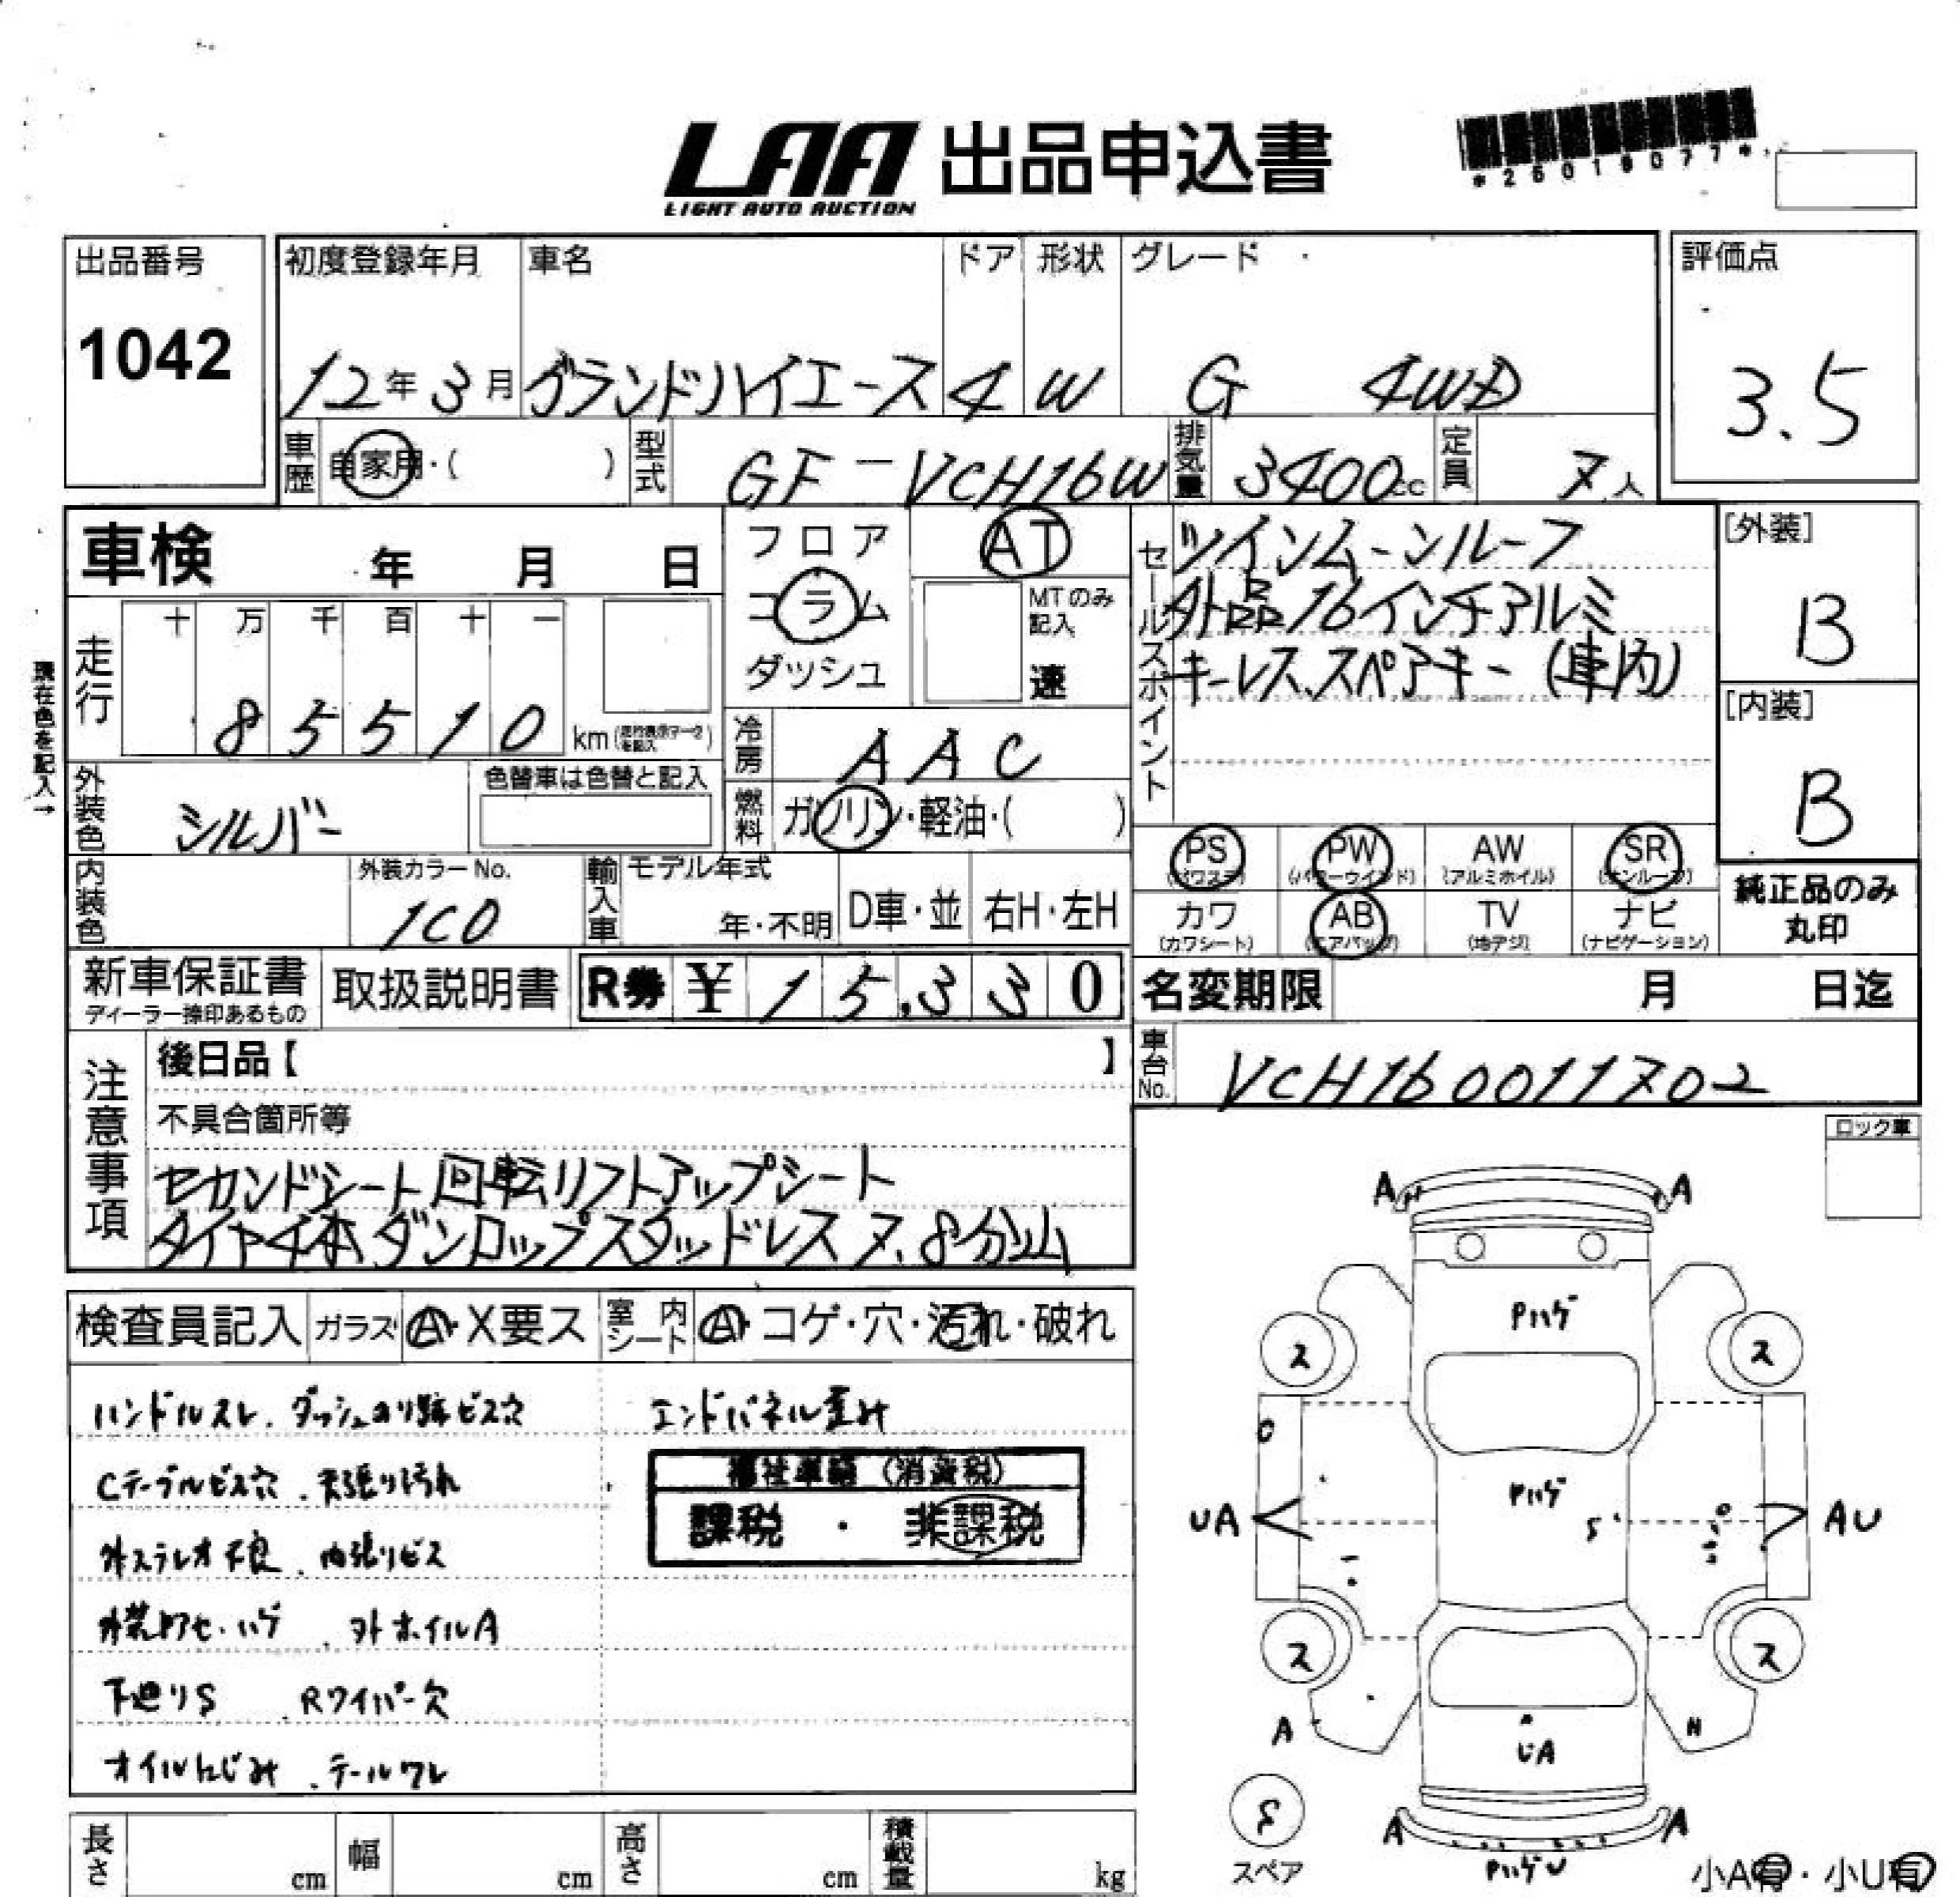 LAA 出品申込書
LIGHT AUTO AUCTION
*26019077*
出品番号
1042
初度登録年月 車名 ドア 形状 グレード
12年3月 グランドハイエース 4 W G 4WD
評価点
3.5
車歴 自家用・( ) 型式 GF-VCH16W 排気量 3400cc 定員 7人
車検 年 月 日
フロア
コラム
ダッシュ
AT
MTのみ記入
速
セールスポイント
ツインムーンルーフ
外品16インチアルミ
キーレス、スペアキー(車内)
[外装]
B
[内装]
B
現在色を記入→
走行 十 万 千 百 十 一
8 5 5 1 0 km
冷房 AAC
外装色 シルバー
色替車は色替と記入
燃料 ガソリン・軽油・( )
PS (パワステ) PW (パワーウインド) AW (アルミホイル) SR (サンルーフ)
カワ (カワシート) AB (エアバッグ) TV (地デジ) ナビ (ナビゲーション)
純正品のみ
丸印
内装色 外装カラーNo. 1C0
輸入車 モデル年式 年・不明 D車・並 右H・左H
新車保証書
ディーラー捺印あるもの
取扱説明書
R券 ¥ 15,330
名変期限 月 日迄
車台No. VCH160011702
注意事項
後日品【 】
不具合箇所等
セカンドシート回転リフトアップシート
タイヤ4本ダンロップスタッドレス7、8分山
ロック車
検査員記入 ガラス A・X要ス 室内シート A・コゲ・穴・汚れ・破れ
ハンドルスレ、ダッシュのり跡ビス穴 エンドパネル歪み
Cテーブルビス穴、天張り汚れ
福祉車輌(消費税)
課税 ・ 非課税
外ステレオ不良、内張りビス
外装色アセ・ハゲ、外ホイルA
下廻りS、Rワイパー欠
オイルにじみ、テールワレ
A A
Pハゲ
ス ス
C
Pハゲ
UA S AU
ス ス
A UA
S
スペア
A A
PハゲU
小A有・小U有
長さ cm 幅 cm 高さ cm 積載量 kg